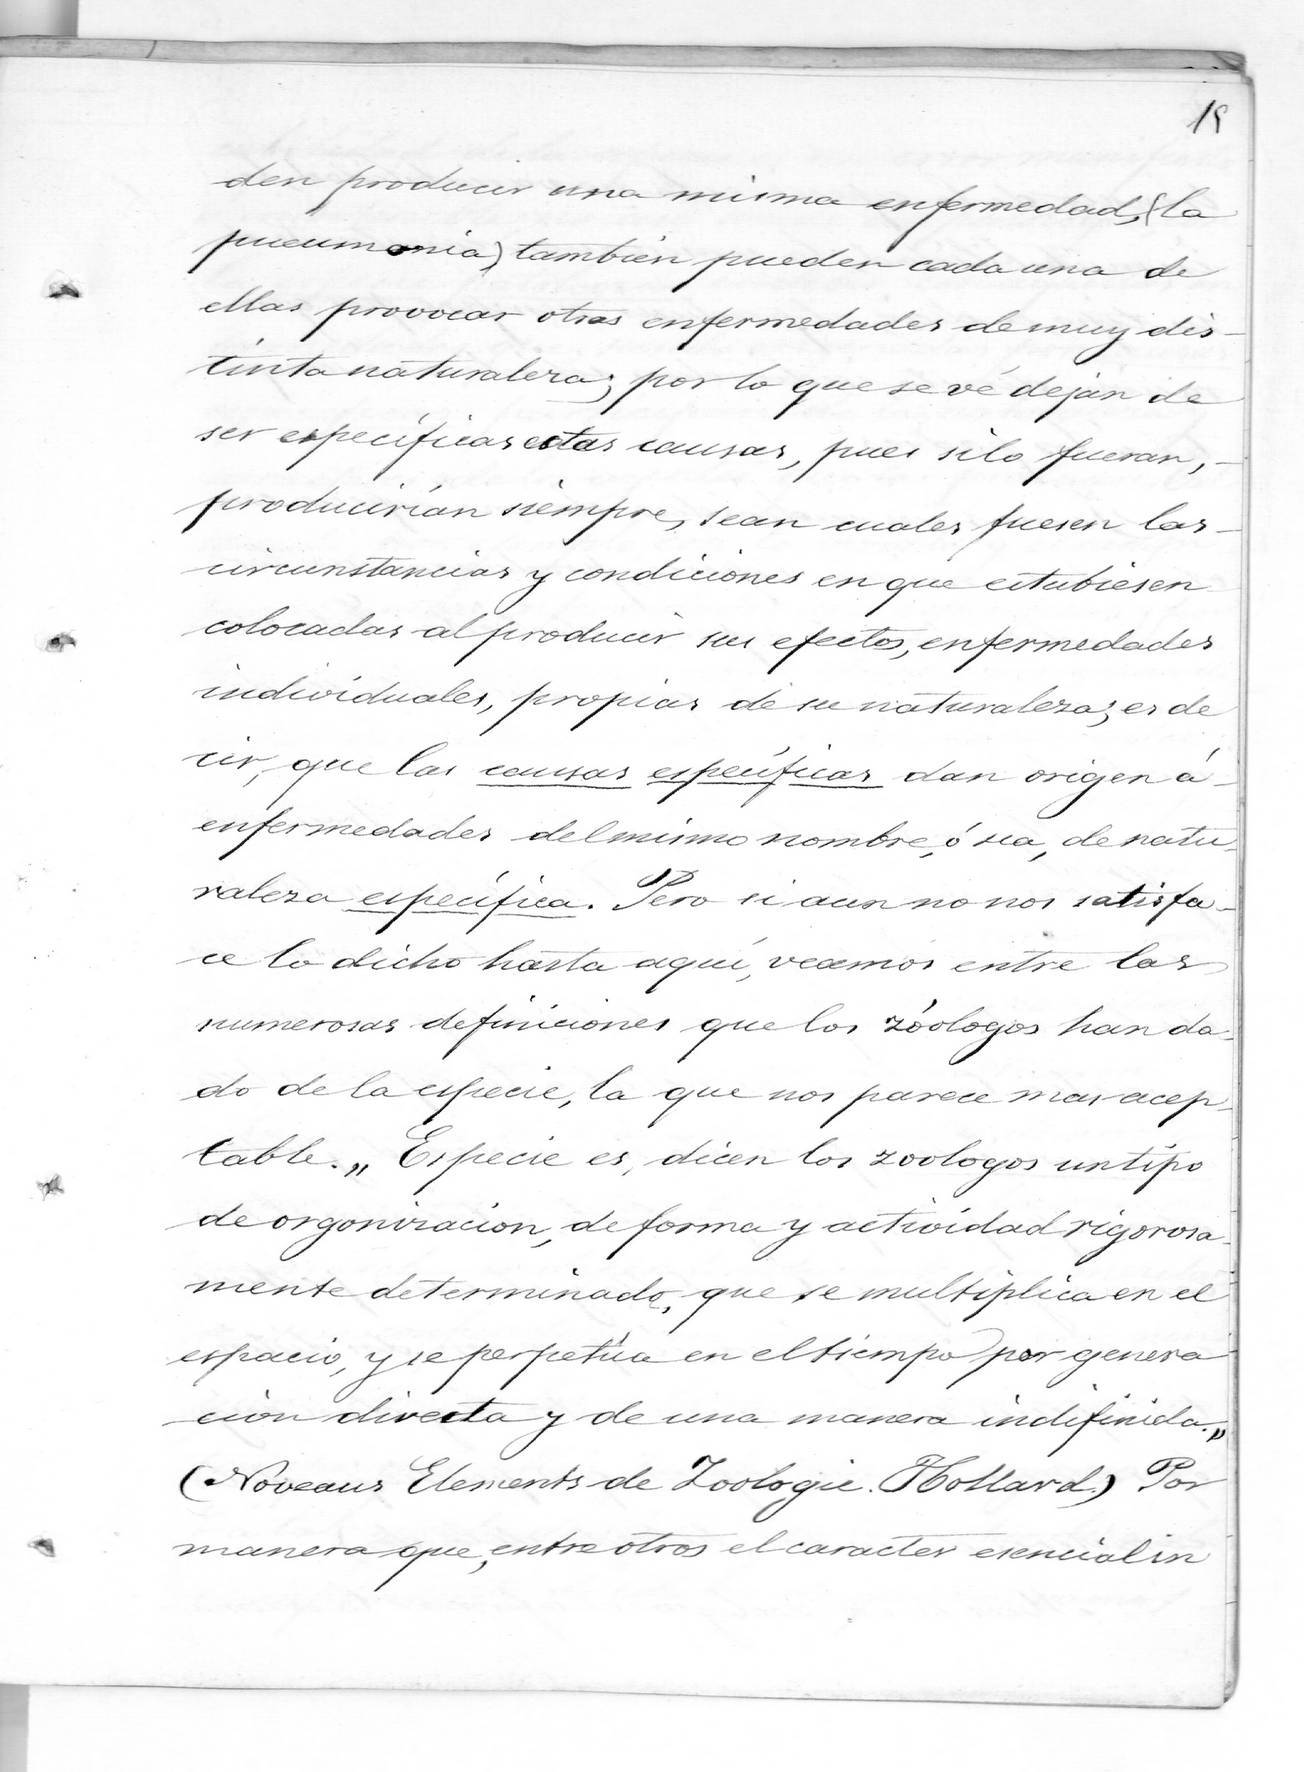 15
den producir una misma enfermedad, (la
pneumonia) tambien pueden cada una de
ellas provocar otras enfermedades de muy dis-
tinta naturaleza; por lo que se vé dejan de
ser específicas estas causas, pues si lo fueran,-
producirían siempre, sean cuales fuesen las-
circunstancias y condiciones en que estubiesen
colocadas al producir sus efectos, enfermedades
individuales, propias de su naturaleza; es de
cir, que las causas específicas dan origen á-
enfermedades del mismo nombre, ó sea, de natu-
raleza específica. Pero si aun no nos satisfa-
ce lo dicho hasta aquí, veamos entre las
numerosas definiciones que los zóologos han da-
do de la especie, la que nos parece mas acep-
table. „ Especie es, dicen los zoologos un tipo
de organizacion, de forma y actividad rigorosa-
mente determinado, que se multiplica en el
espacio, y se perpetúa en el tiempo por genera
cion directa y de una manera indifinida.„
(Noveaus Elements de Zoologie. Hollard.) Por
manera que, entre otros el caracter esencial in